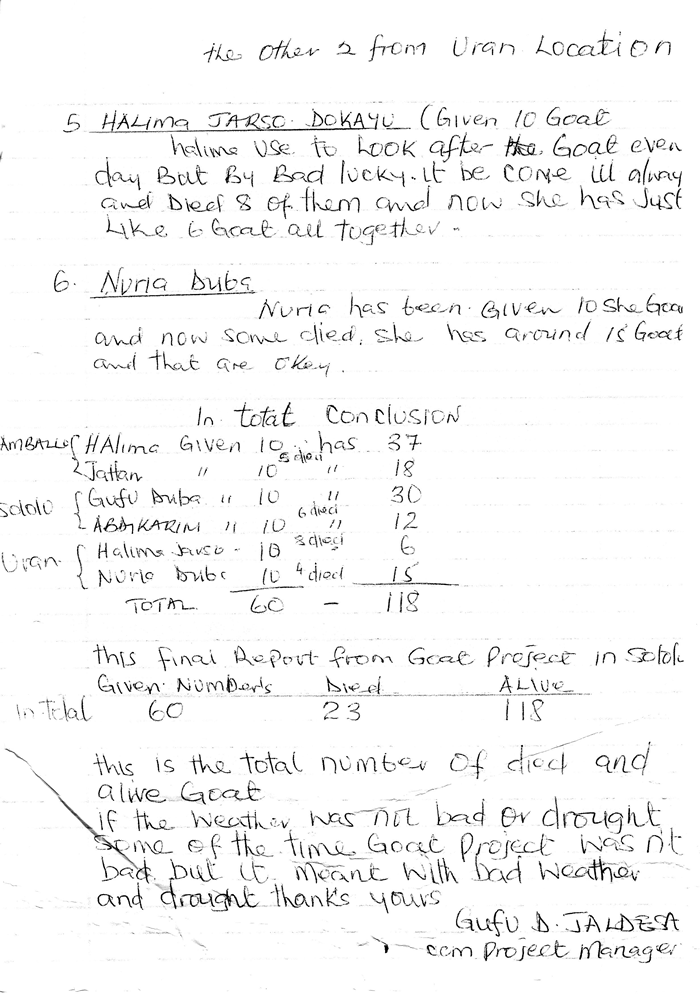 the Other 2 from Uran Location
5 HALima JARSO. DOKAYU (Given 10 Goat
halima Use to Look after the Goat even
day But By Bad lucky. it be come ill alway
and Died 8 of them and now she has Just
Like 6 Goat all together.
6. Nuria Duba
Nuria has been. Given 10 She Goa
and now some died. she has around 15 Goat
and that are okey.
In total Conclusion
AMBALLO { HAlima Given 10 has 37
2 Jattan " 10 5 died " 18
Sololo { Gufu Duba " 10 " 30
ABDIKARIM " 10 6 died " 12
Uran { Halima Jarso - 10 8 died 6
Nuria Duba 10 4 died 15
TOTAL 60 - 118
this final Report from Goat Project in Solol
Given. Numbers Died ALIVe
In Total 60 23 118
this is the total number of died and
alive Goat
if the weather was not bad or drought
some of the time Goat Project was nt
bad. but it meant with bad weather
and drought thank's yours
Gufu D. JALDESA
ccm Project Manager